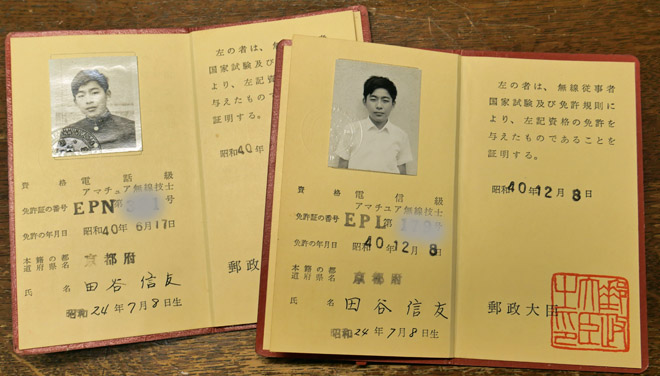 左の者は、無
国家試験及び
より、左記資
与えたもので
証明する。
昭和40年
資格 電話級
アマチュア無線技士
免許証の番号 EPN 第 号
免許の年月日 昭和40年6月17日
本籍の都道府県名 京都府
氏名 田谷信友
昭和24年7月8日生
郵政
左の者は、無線従事者
国家試験及び免許規則に
より、左記資格の免許を
与えたものであることを
証明する。
昭和40年12月8日
資格 電信級
アマチュア無線技士
免許証の番号 EPL 第
免許の年月日 40.12.8
本籍の都道府県名 京都府
氏名 田谷信友
昭和24年7月8日生
郵政大臣